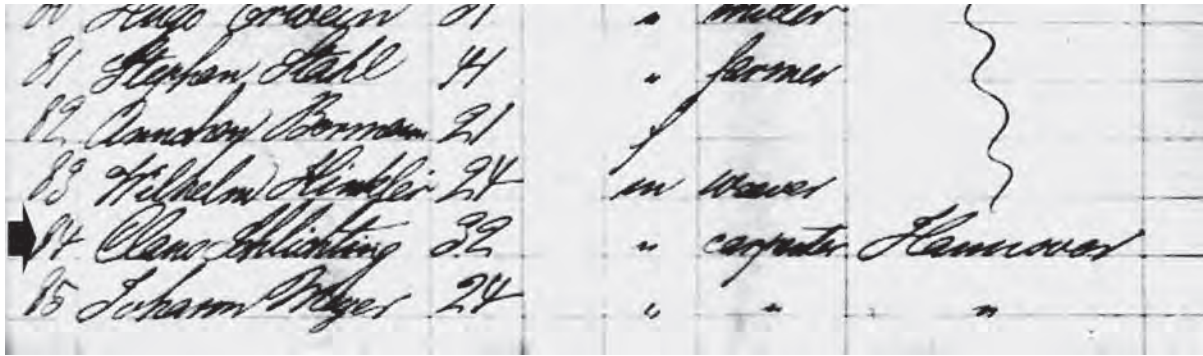 80 Hugo Erwein 31 " miller
81 Stephen Stahl 41 " farmer
82 Bormann 21 f
83 Wilhelm Hinkler 24 m weaver
84 Claus Schlichting 32 " carpenter Hannover
85 Johann Meyer 24 " " "